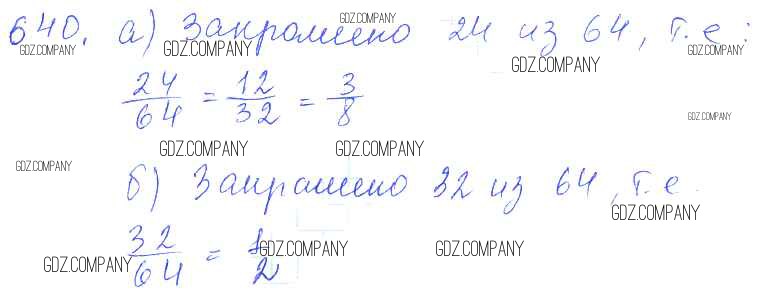 640. а) Закрашено 24 из 64, т.е.:
24/64 = 12/32 = 3/8
б) Закрашено 32 из 64, т.е.
32/64 = 1/2
GDZ.COMPANY
GDZ.COMPANY
GDZ.COMPANY
GDZ.COMPANY
GDZ.COMPANY
GDZ.COMPANY
GDZ.COMPANY
GDZ.COMPANY
GDZ.COMPANY
GDZ.COMPANY
GDZ.COMPANY
GDZ.COMPANY
GDZ.COMPANY